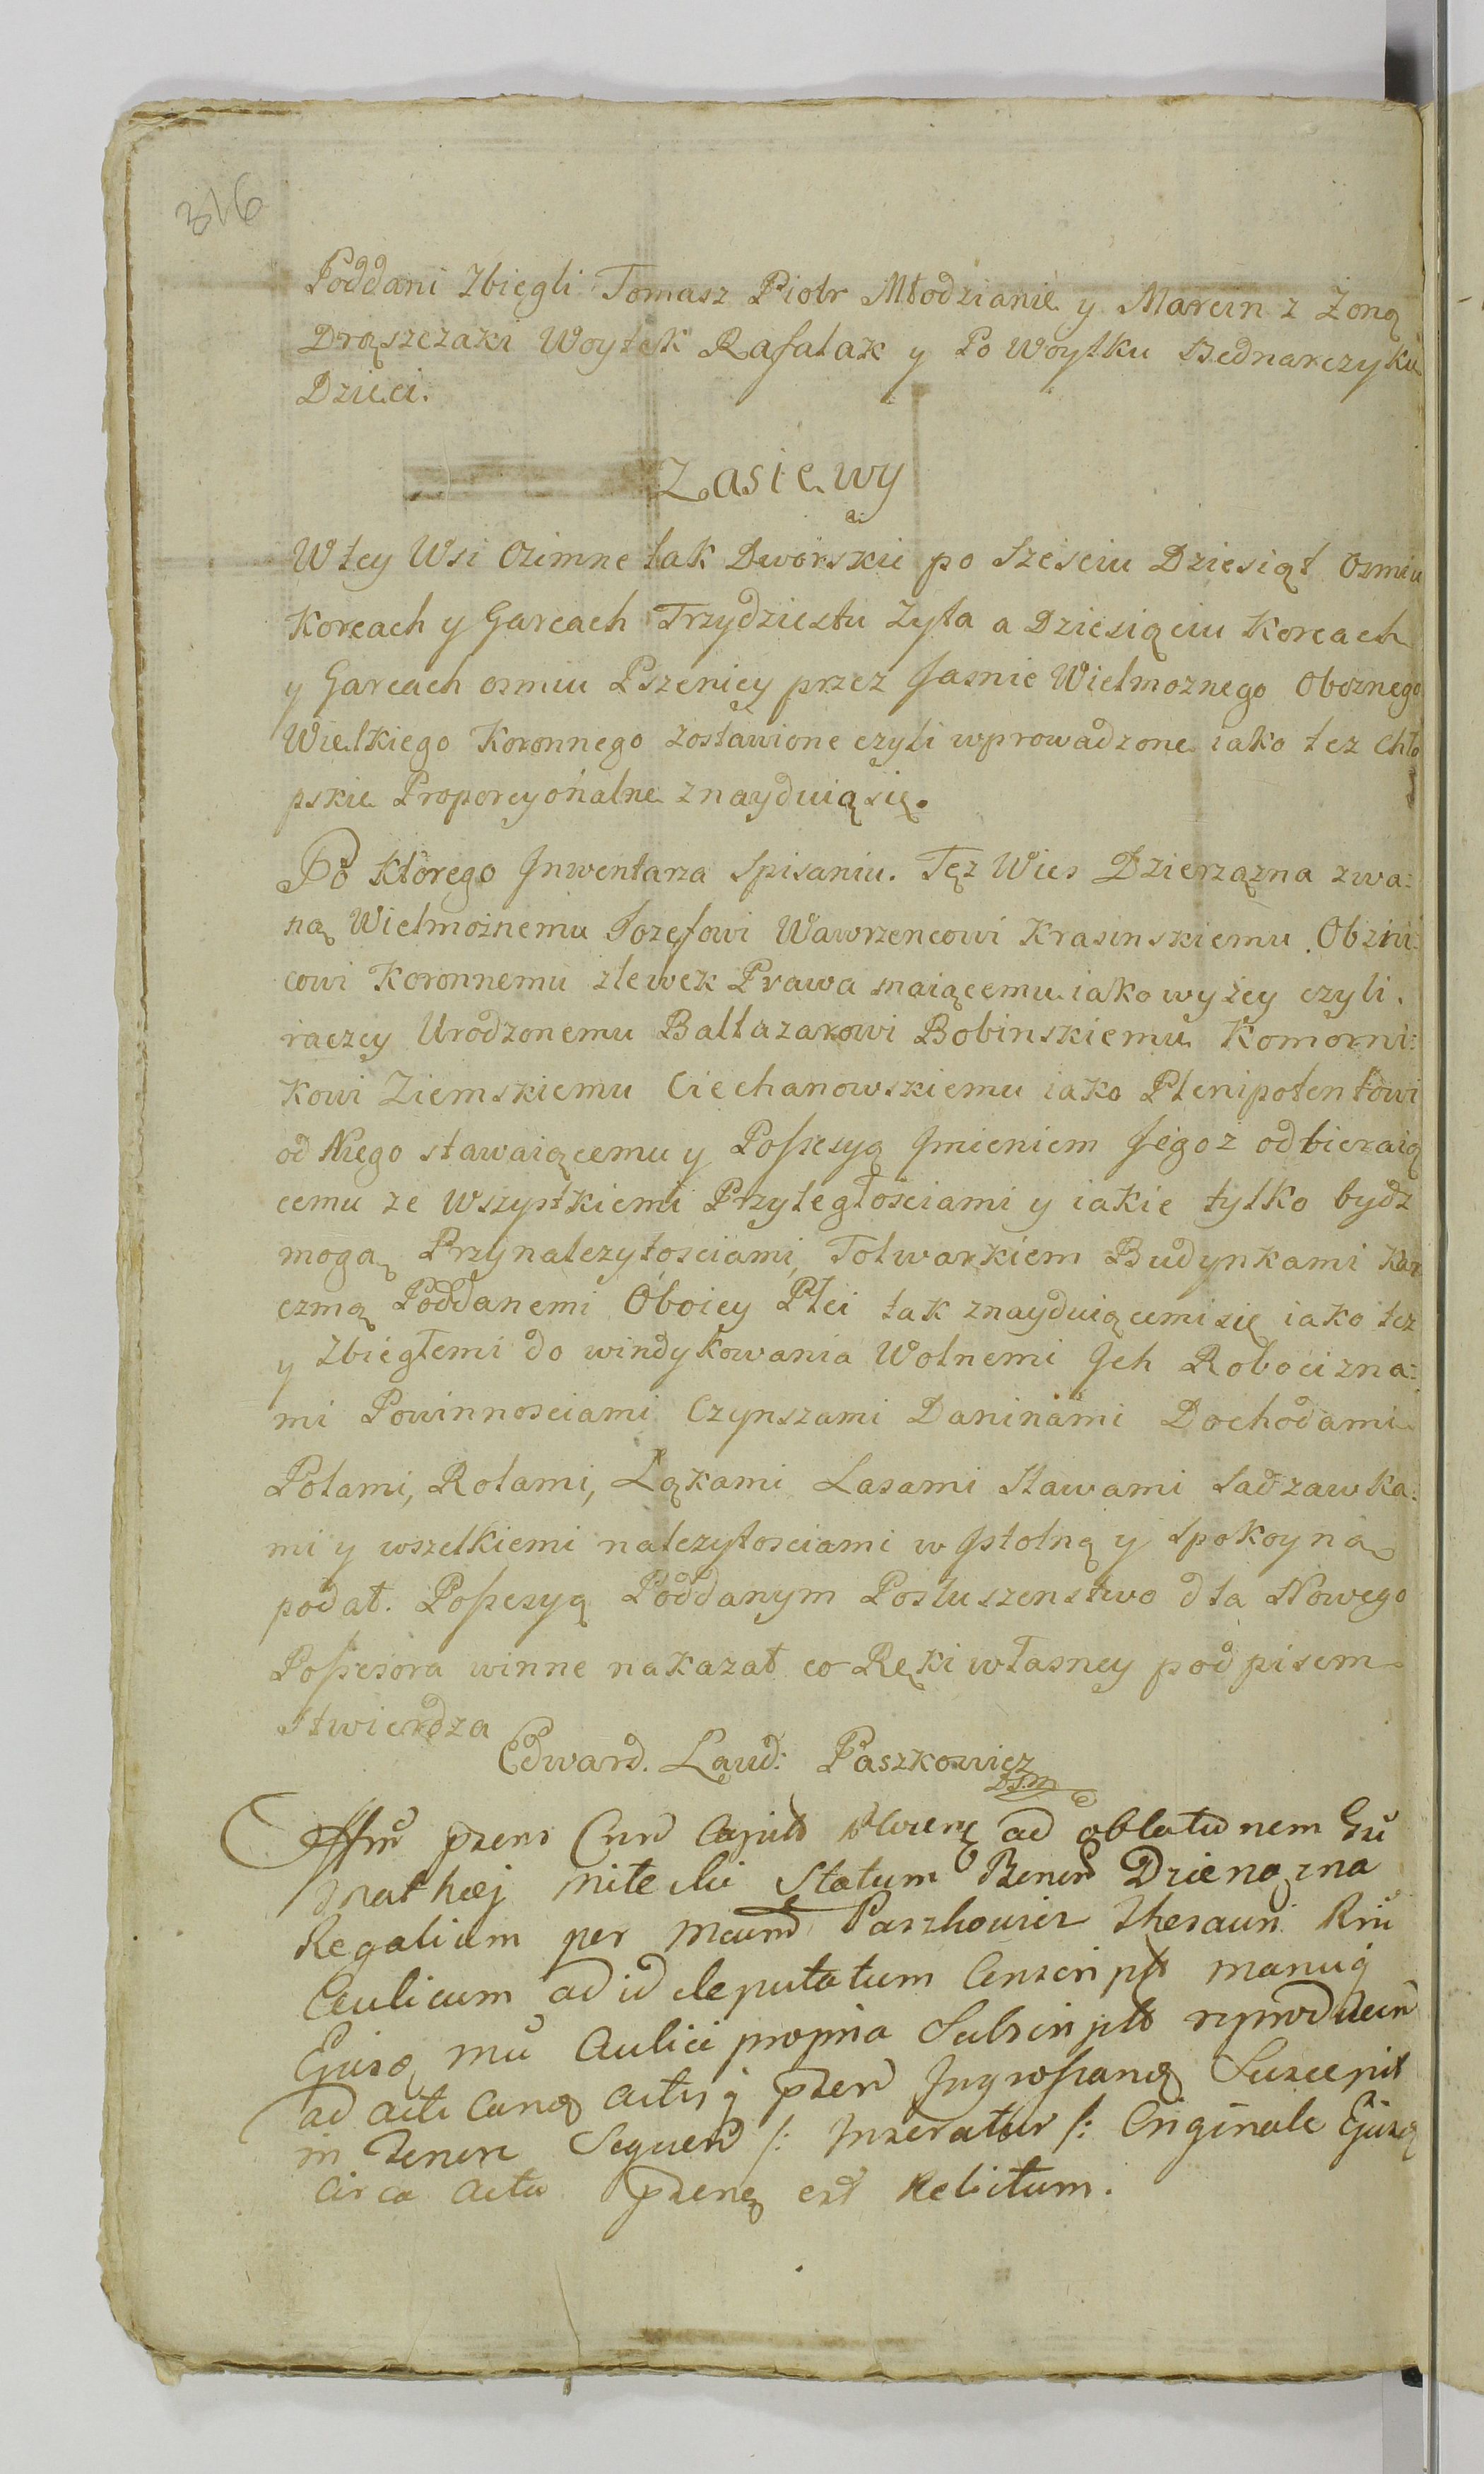 316
Poddani Zbiegli Tomasz Piotr Młodzianie y Marcin z Zoną
Drąszczaki Woytek Rafalak y Po Woytku Bednarczyku
Dzieci.
Zasiewy
W tey Wsi Ozimne tak Dworskie po Szesciu Dziesiąt Osmiu
Korcach y Garcach Trzydziestu Zyta a Dziesięciu Korcach
y Garcach osmiu Pszenicy przez Jasnie Wielmoznego Oboznego
Wielkiego Koronnego zostawione czyli wprowadzone iako tez Chło
pskie Proporcyonalne znayduią się.
Po ktorego Jnwentarza Spisaniu. Tęz Wies Dzierzązna zwa:
ną Wielmoznemu Jozefowi Wawrzencowi Krasinskiemu Obzni:
cowi Koronnemu zlewek Prawa maiącemu iako wyzey czyli
raczey Urodzonemu Baltazarowi Bobinskiemu Komorni:
kowi Ziemskiemu Ciechanowskiemu iako Plenipotentowi
od Niego stawaiącemu y Possesyą Jmieniem Jegoz odbieraią
cemu ze Wszystkiemi Przyległosciami y iakie tylko bydz
mogą Przynalezytosciami, Folwarkiem Budynkami Kar
czmą Poddanemi Oboiey Płci tak znayduiącemi się iako tez
y Zbiegłemi do windykowania Wolnemi Jch Robocizna:
mi Powinnosciami Czynszami Daninami Dochodami
Polami, Rolami, Łąkami Lasami Stawami Sadzawka:
mi y wszelkiemi nalezytosciami w Jstotną y Spokoyną
podał. Possesyą Poddanym Posłuszenstwo dla Nowego
Possesora winne nakazał co Ręki własney podpisem
stwierdza
Edward. Laud: Paszkowicz
Offm prens Cur ad oblatunem
Statum Bonor Dzierzązna
Regalium per Paszkowicz Thesauri Rni
Aulicum ad id deputatum Conscript manuq
Ejusq Aulici propria Subscript reproducen
ad acti canq actisq pren Jngrossandq Suscepit
in Tenore Sequen /: Jnseratur /: Originale Ejusq
Circa Acta prenq est Relictum.